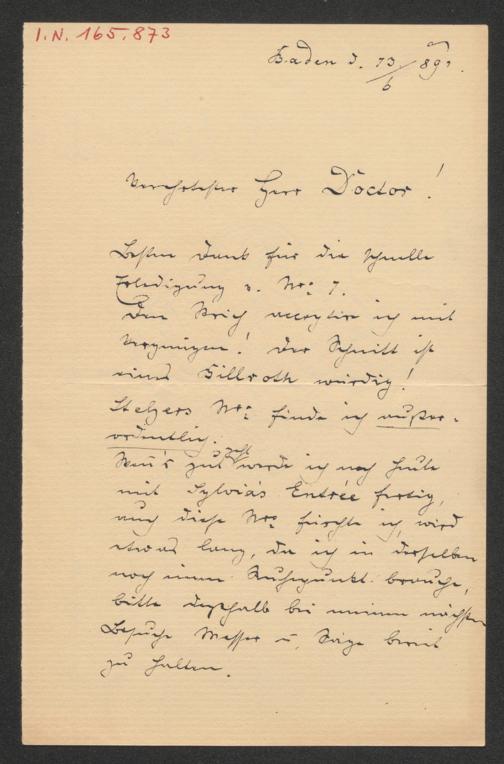 I.N. 165.873
Baden d. 13/6 891.
Verehrtester Herr Doctor!
Besten Dank für die schnelle
Erledigung v. Nro: 7.
Den Strich acceptire ich mit
Vergnügen! Der Schnitt ist
eines Billroth würdig!
Stelzers Nro: finde ich außer-
ordentlich.
Wenn's gut geht werde ich noch heute
mit Sylvia's Entrée fertig,
auch diese Nro fürchte ich, wird
etwas lang, da ich in derselben
noch einen Ruhepunkt brauche,
bitte deshalb bei meinem nächsten
Besuche Messer u. Säge bereit
zu halten.